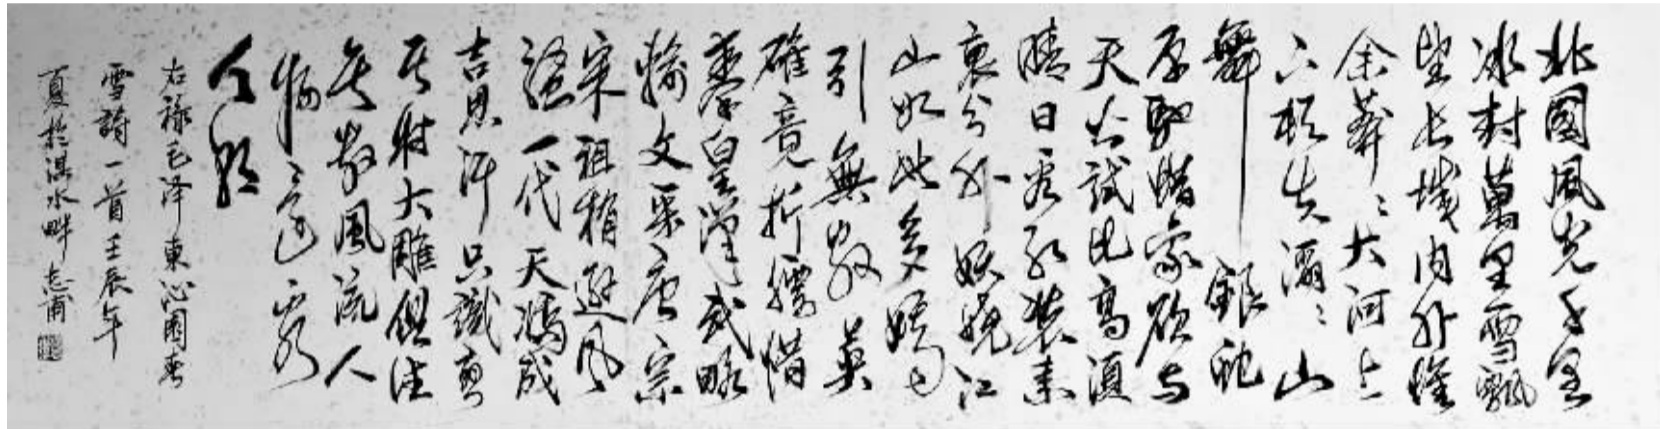 北國風光千里
冰封萬里雪飄
望長城內外惟
余莽ミ大河上
下頓失滔ミ山
舞銀蛇
原馳蜡象欲与
天公試比高須
晴日看紅裝素
裹分外妖娆江
山如此多嬌
引無數英
雄竟折腰惜
秦皇漢武略
輸文采唐宗
宋祖稍遜風
騷一代天驕成
吉思汗只識彎
弓射大雕俱往
矣數風流人
物ミ還看
今朝
右祿毛泽東沁園春
雪詩一首壬辰年
夏於湛水畔志甫